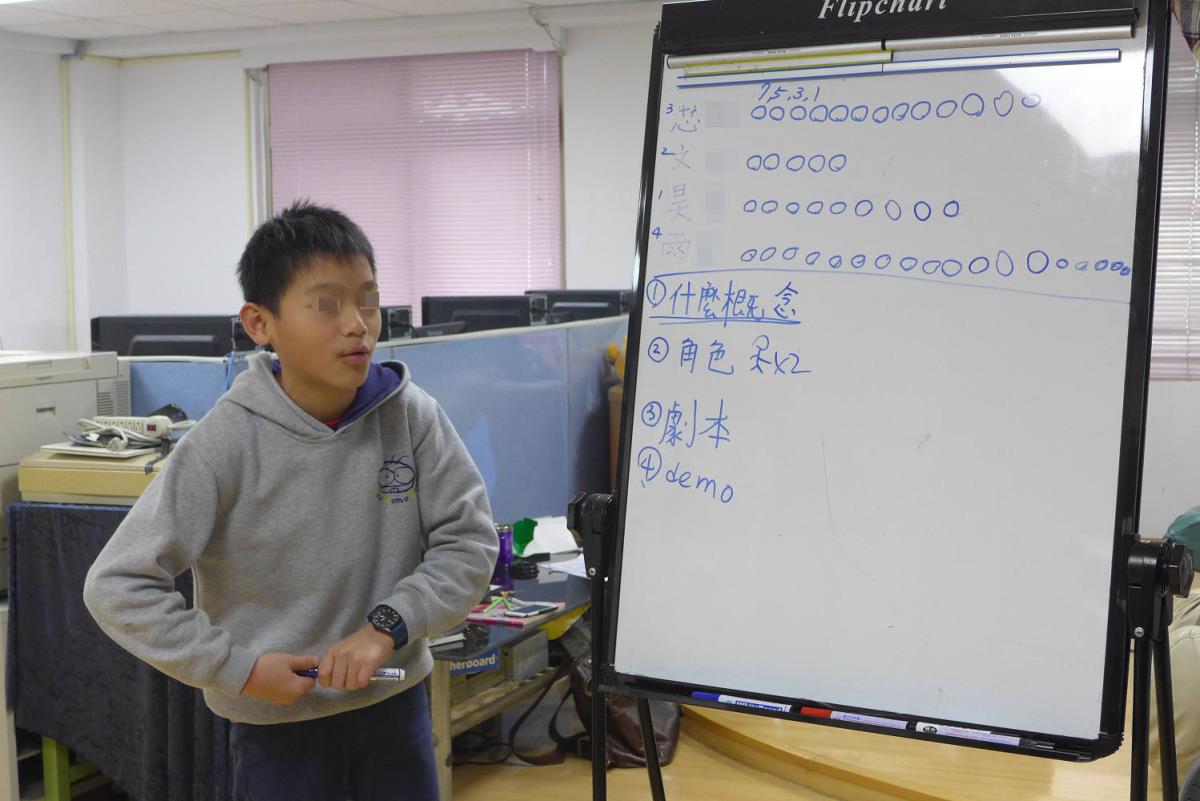 Flipchart
7,5,3,1
3 慈
2 文
1 昊
4 雨
① 什麼概念
② 角色 呆x2
③ 劇本
④ demo
demo
herboard